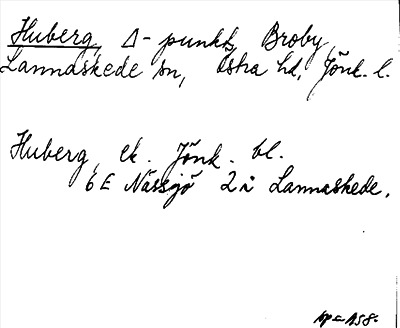 Huberg, Δ-punkt, Broby,
Lannaskede sn, Östra hd, Jönk. l.
Huberg, ek. Jönk. bl.
6E Nässjö 2i Lannaskede.